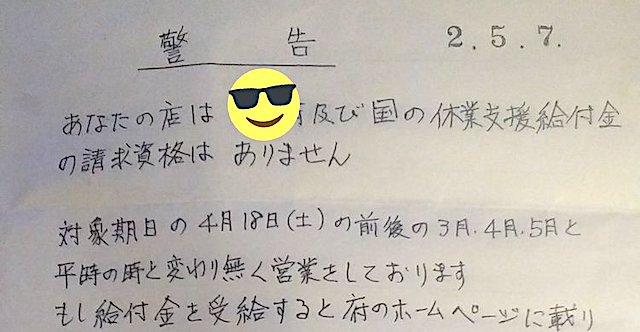 警告 2.5.7.
あなたの店は 府及び国の休業支援給付金
の請求資格は ありません
対象期日の4月18日(土)の前後の3月.4月.5月と
平時の時と変わり無く営業をしております
もし給付金を受給すると府のホームページに載り